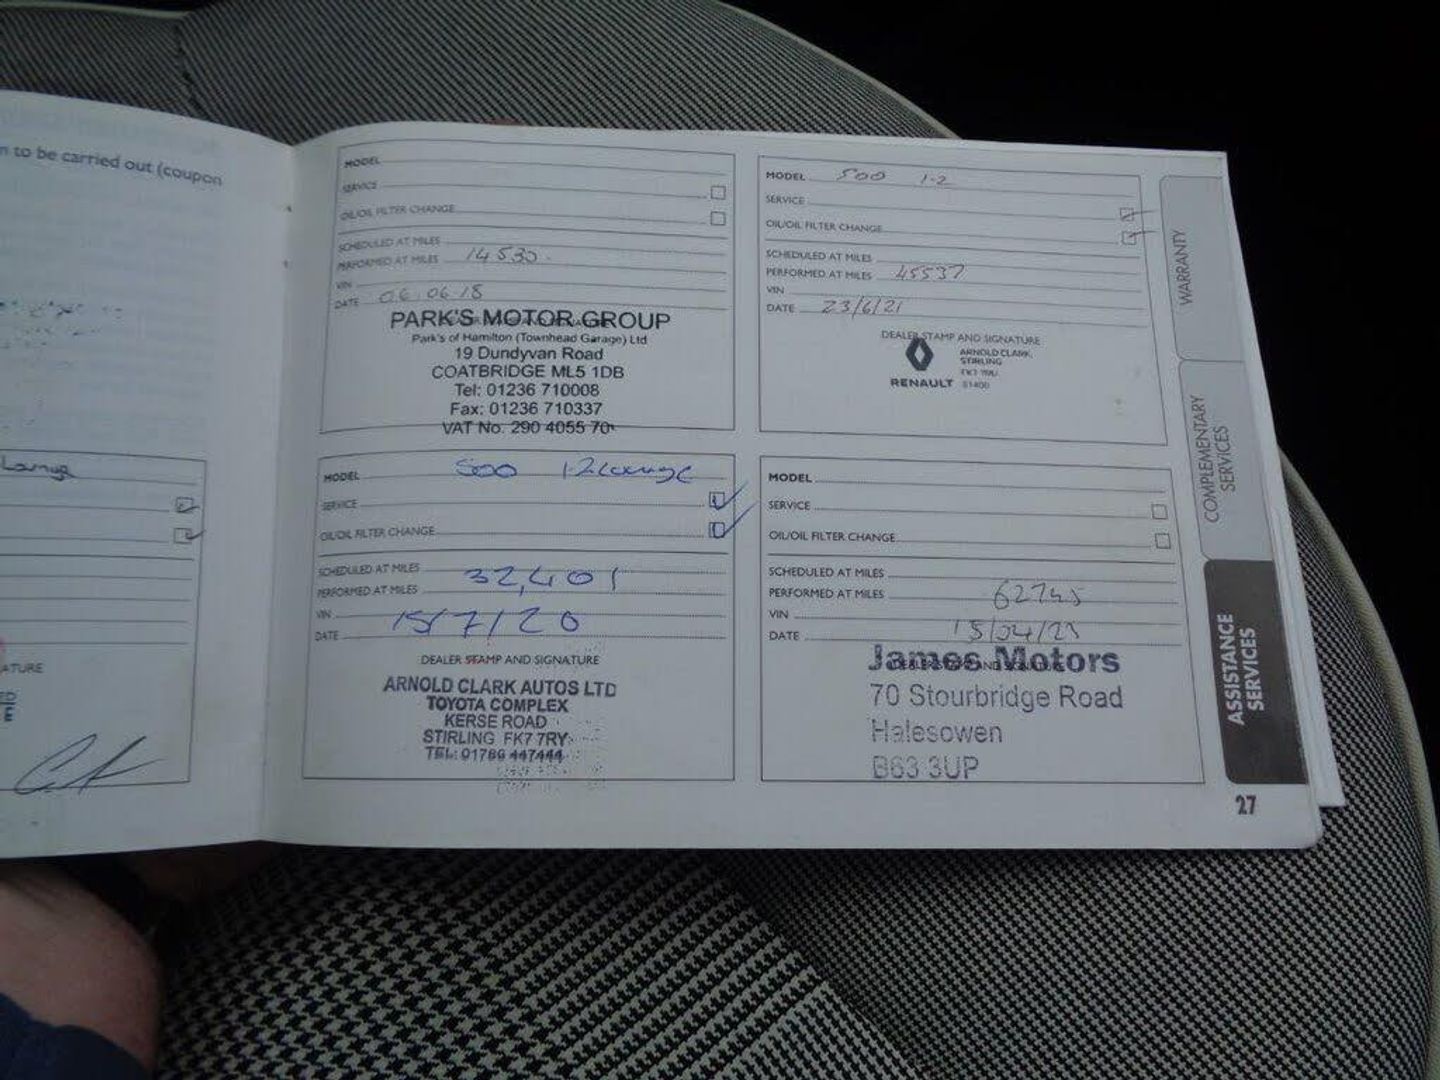 n to be carried out (coupon
Lounge
ATURE
ED
E
MODEL
SERVICE
OIL/OIL FILTER CHANGE
SCHEDULED AT MILES
PERFORMED AT MILES 14530.
VIN
DATE 06.06.18
PARK'S MOTOR GROUP
Park's of Hamilton (Townhead Garage) Ltd
19 Dundyvan Road
COATBRIDGE ML5 1DB
Tel: 01236 710008
Fax: 01236 710337
VAT No. 290 4055 70
MODEL 500 1.2 Lounge
SERVICE
OIL/OIL FILTER CHANGE
SCHEDULED AT MILES
PERFORMED AT MILES 32,401
VIN
DATE 15/7/20
DEALER STAMP AND SIGNATURE
ARNOLD CLARK AUTOS LTD
TOYOTA COMPLEX
KERSE ROAD
STIRLING FK7 7RY
TEL: 01786 447444
MODEL 500 1.2
SERVICE
OIL/OIL FILTER CHANGE
SCHEDULED AT MILES
PERFORMED AT MILES 45537
VIN
DATE 23/6/21
DEALER STAMP AND SIGNATURE
RENAULT
ARNOLD CLARK,
STIRLING
MODEL
SERVICE
OIL/OIL FILTER CHANGE
SCHEDULED AT MILES
PERFORMED AT MILES 62745
VIN
DATE 15/04/23
James Motors
70 Stourbridge Road
Halesowen
B63 3UP
WARRANTY
COMPLEMENTARY
SERVICES
ASSISTANCE
SERVICES
27